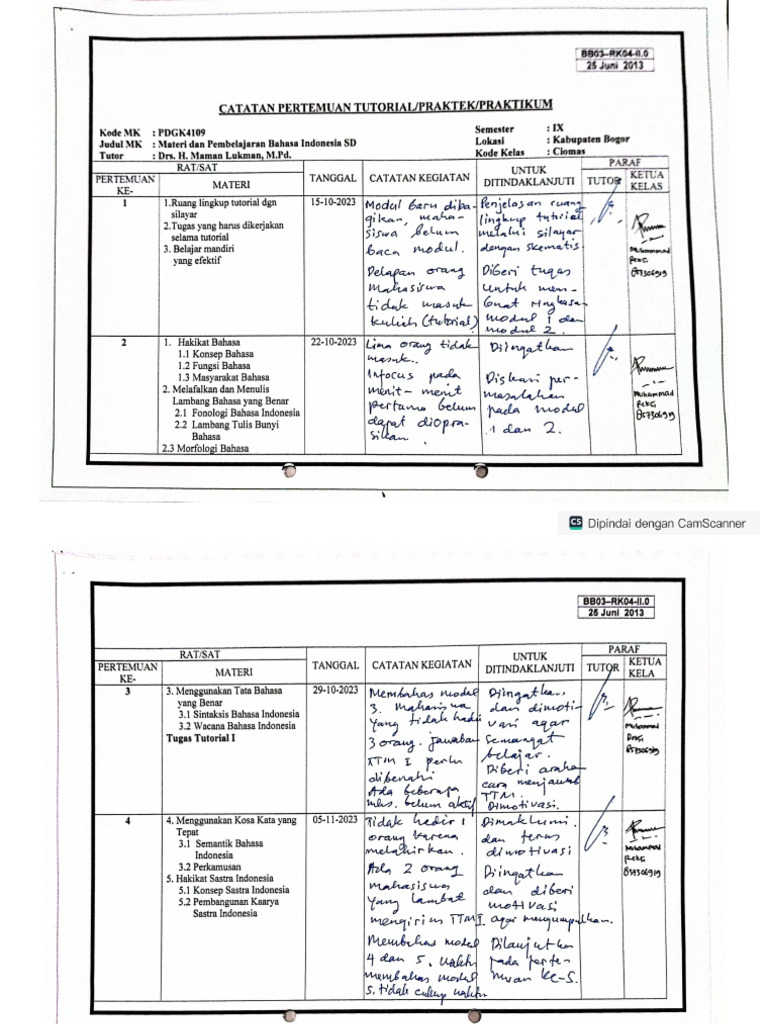 BB03-RK04-II.0
25 Juni 2013
CATATAN PERTEMUAN TUTORIAL/PRAKTEK/PRAKTIKUM
Kode MK : PDGK4109
Judul MK : Materi dan Pembelajaran Bahasa Indonesia SD
Tutor : Drs. H. Maman Lukman, M.Pd.
Semester : IX
Lokasi : Kabupaten Bogor
Kode Kelas : Ciomas
RAT/SAT
PERTEMUAN KE-
MATERI
TANGGAL
CATATAN KEGIATAN
UNTUK DITINDAKLANJUTI
PARAF
TUTOR
KETUA KELAS
1
1.Ruang lingkup tutorial dgn
silayar
2.Tugas yang harus dikerjakan
selama tutorial
3. Belajar mandiri
yang efektif
15-10-2023
Modul baru diba-
gikan, maha-
siswa belum
baca modul.
Delapan orang
mahasiswa
tidak masuk
kuliah (tutorial)
Penjelasan ruang
lingkup tutorial
melalui silayar
dengan skematis
Diberi tugas
untuk mem-
buat ringkasan
modul 1 dan
modul 2.
Muhammad
2
1. Hakikat Bahasa
1.1 Konsep Bahasa
1.2 Fungsi Bahasa
1.3 Masyarakat Bahasa
2. Melafalkan dan Menulis
Lambang Bahasa yang Benar
2.1 Fonologi Bahasa Indonesia
2.2 Lambang Tulis Bunyi
Bahasa
2.3 Morfologi Bahasa
22-10-2023
Lima orang tidak
masuk.
Infocus pada
menit-menit
pertama belum
dapat diopra-
sikan.
Diingatkan
Diskusi per-
masalahan
pada modul
1 dan 2.
Muhammad
CS Dipindai dengan CamScanner
BB03-RK04-II.0
25 Juni 2013
RAT/SAT
PERTEMUAN KE-
MATERI
TANGGAL
CATATAN KEGIATAN
UNTUK DITINDAKLANJUTI
PARAF
TUTOR
KETUA KELA
3
3. Menggunakan Tata Bahasa
yang Benar
3.1 Sintaksis Bahasa Indonesia
3.2 Wacana Bahasa Indonesia
Tugas Tutorial I
29-10-2023
Membahas modul
3. Mahasiswa
yang tidak hadir
3 orang. jawaban
TTM I perlu
dibenahi
Ada beberapa
mhs. belum aktif
Diingatkan,
dan dimoti-
vasi agar
semangat
belajar.
Diberi arahan
cara menjawab
TTM.
Dimotivasi.
Muhammad
4
4. Menggunakan Kosa Kata yang
Tepat
3.1 Semantik Bahasa
Indonesia
3.2 Perkamusan
5. Hakikat Sastra Indonesia
5.1 Konsep Sastra Indonesia
5.2 Pembangunan Kaarya
Sastra Indonesia
05-11-2023
Tidak hadir 1
orang karena
melahirkan.
Ada 2 orang
mahasiswa
yang lambat
mengirim TTM I
Membahas modul
4 dan 5. Waktu
membahas modul
5. tidak cukup waktu
Dimaklumi.
dan terus
dimotivasi
Diingatkan
dan diberi
motivasi
agar mengumpulkan.
Dilanjutkan
pada perte-
muan ke-5.
Muhammad